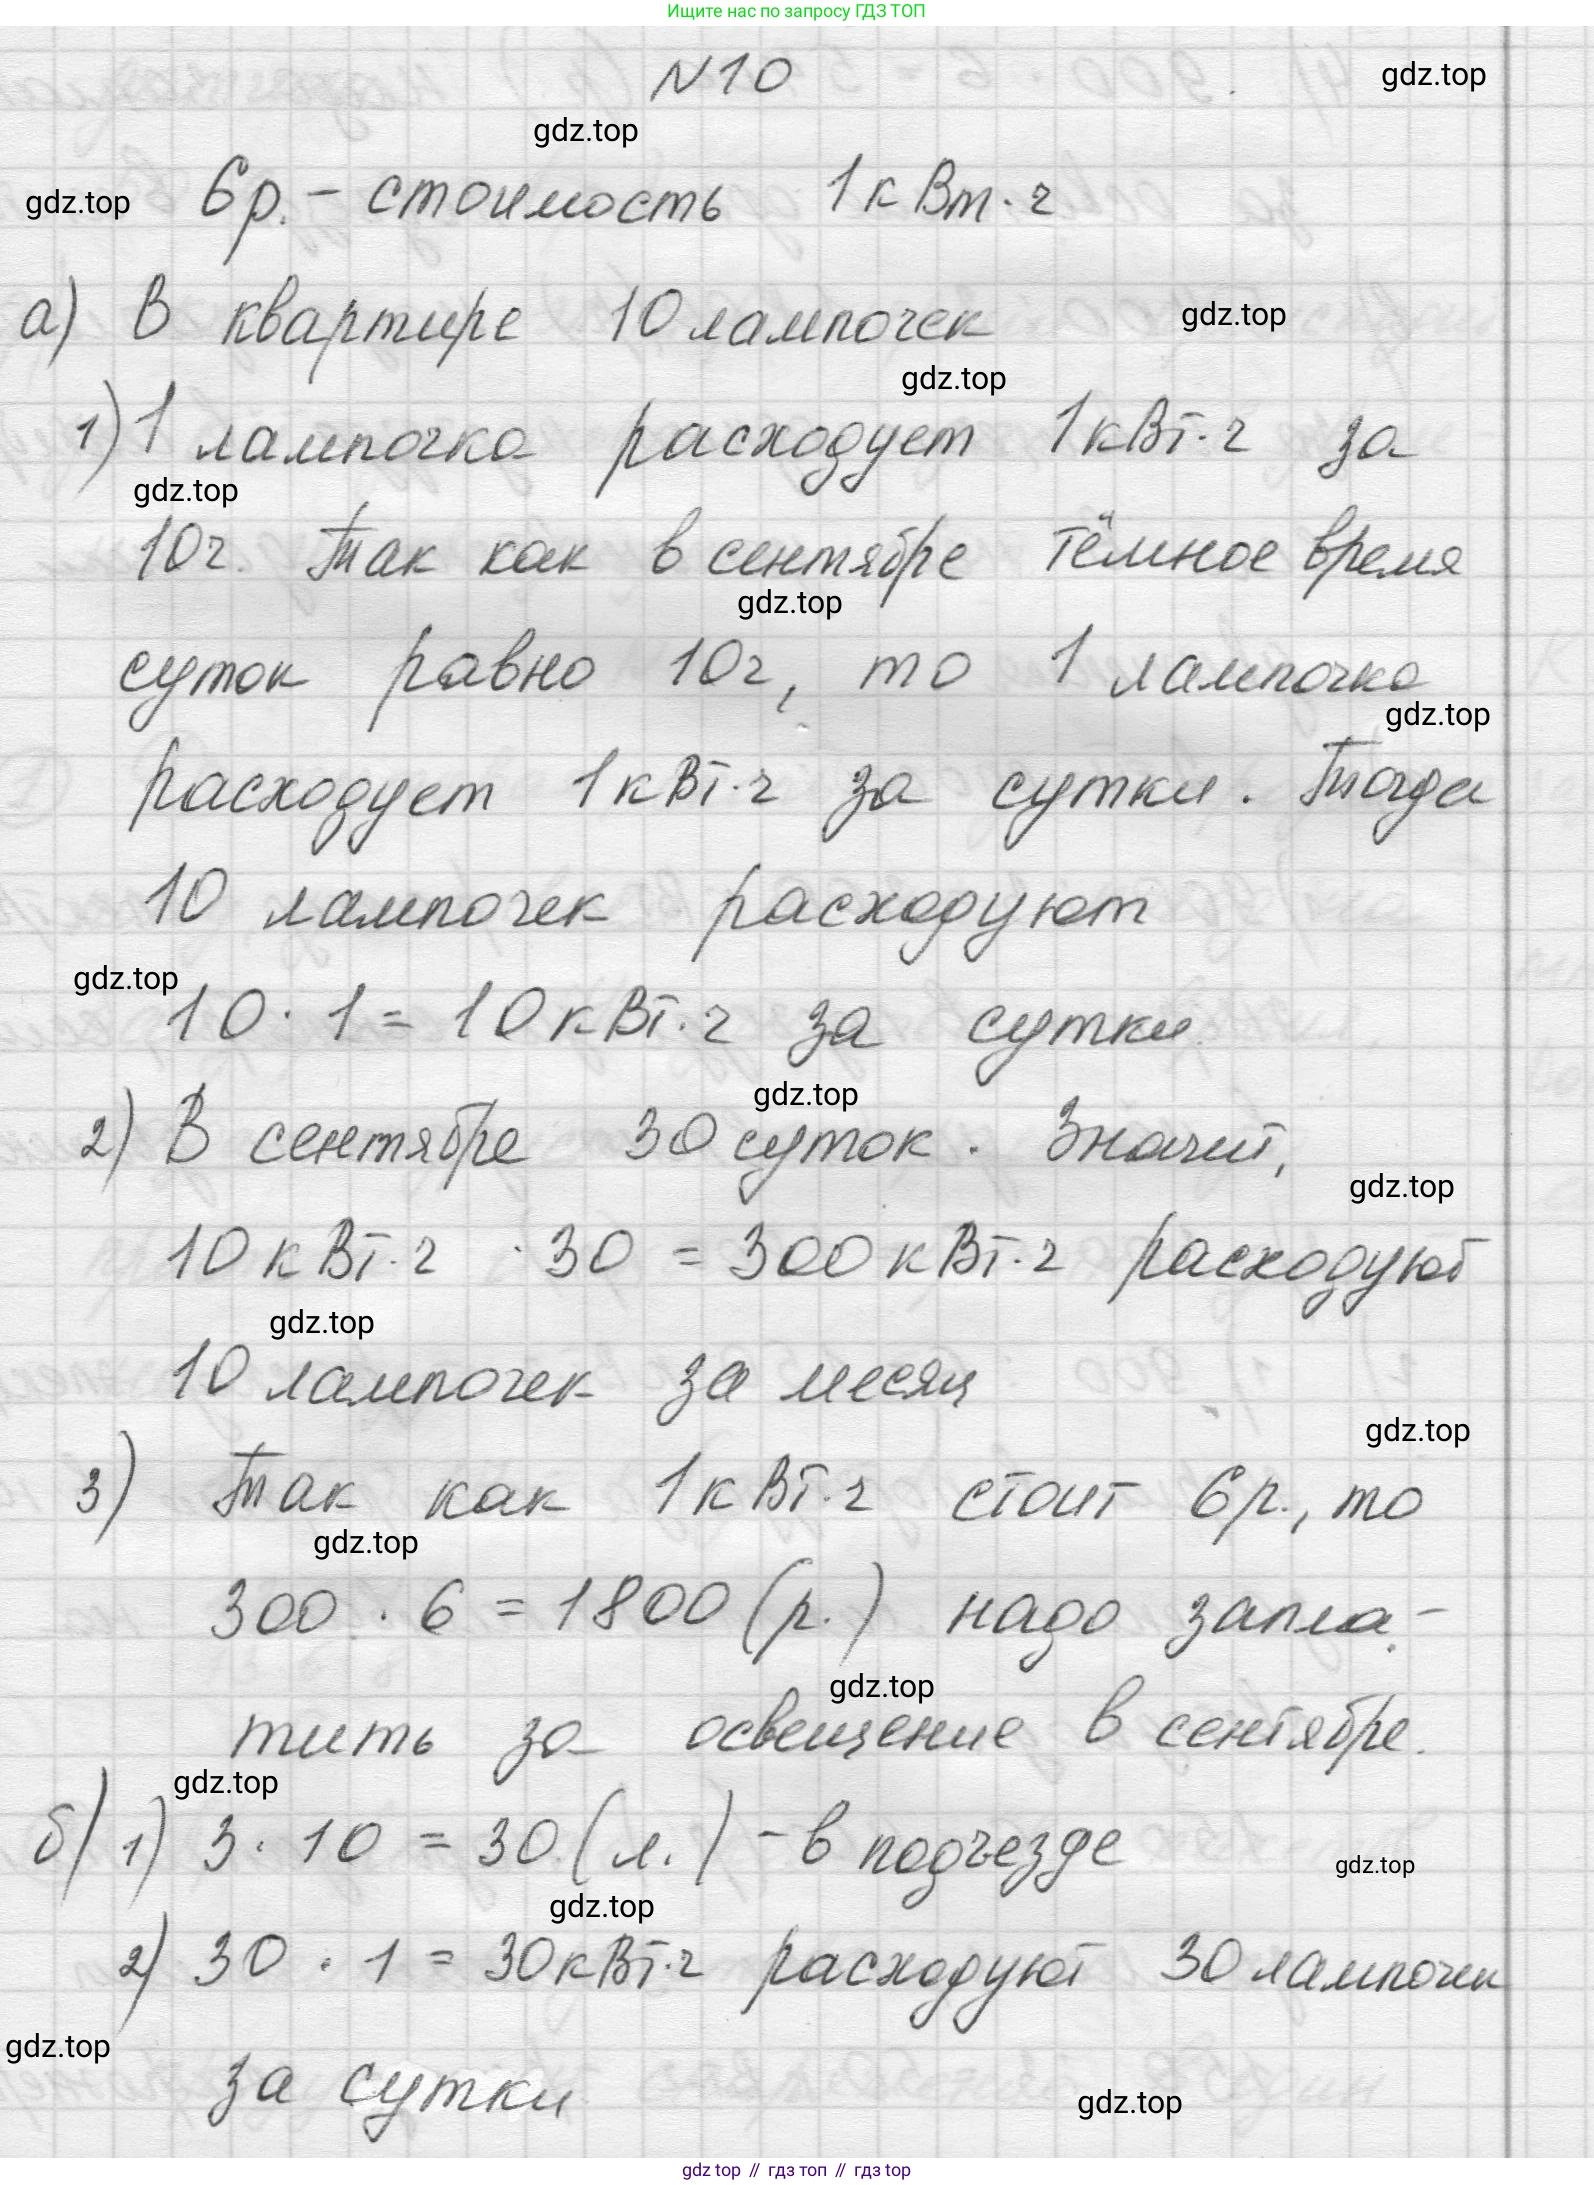 Ищите нас по запросу ГДЗ ТОП
N10
gdz.top
gdz.top
gdz.top
6р. - стоимость 1кВт·ч
а) В квартире 10 лампочек
gdz.top
gdz.top
1) 1 лампочка расходует 1кВт·ч за
gdz.top
10ч. Так как в сентябре тёмное время
gdz.top
суток равно 10ч, то 1 лампочка
gdz.top
расходует 1кВт·ч за сутки. Тогда
10 лампочек расходуют
gdz.top
10 · 1 = 10кВт·ч за сутки
gdz.top
2) В сентябре 30 суток. Значит,
gdz.top
10кВт·ч · 30 = 300кВт·ч расходуют
gdz.top
10 лампочек за месяц
gdz.top
3) Так как 1кВт·ч стоит 6р., то
gdz.top
300 · 6 = 1800 (р.) надо запла-
gdz.top
тить за освещение в сентябре.
gdz.top
б) 1) 3 · 10 = 30 (л.) - в подъезде
gdz.top
gdz.top
2) 30 · 1 = 30кВт·ч расходуют 30 лампочек
gdz.top
за сутки
gdz.top
gdz top // гдз топ // гдз top